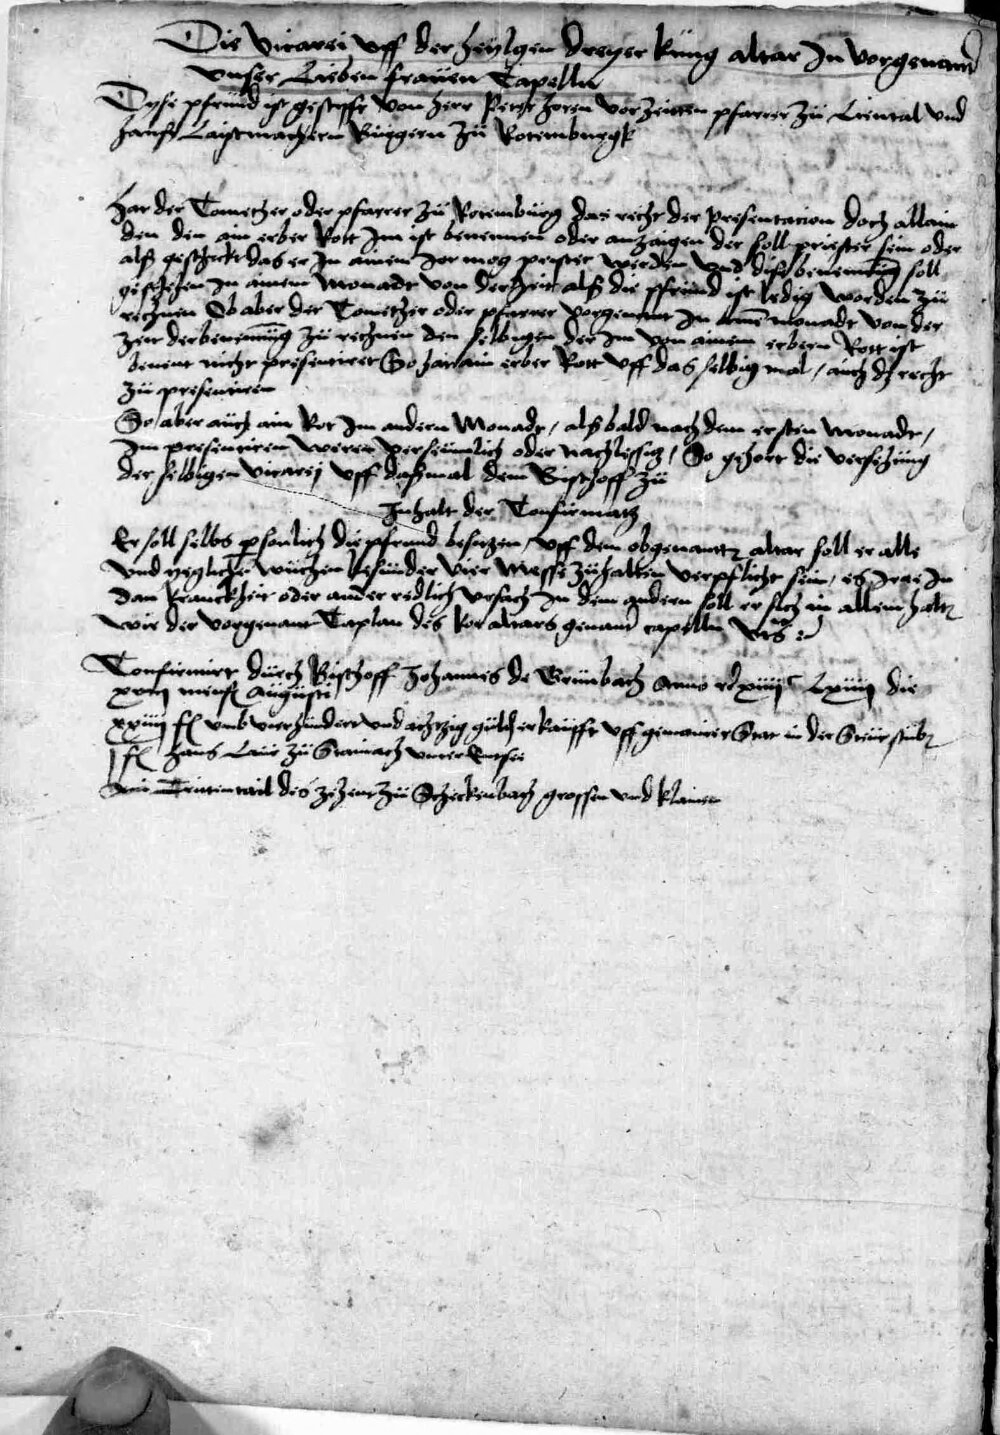 Die Vicarei uff der heylgen dreyer küng altar In vorgenant
unser Lieben frauen Capelln
Dyse pfründ ist gestifft von herr Peter horen vorzeitten pfarrer zü Liental und
hansen Laistmachern Burgern zü Rotemburgk
Hat der Comether oder pfarrer zü Rotemburg das recht der presentacion doch allain
den den ain erber Rott Im ist benennen oder anzaigen der soll priester sein oder
alß geschickt das er In ainem Jor mog prister werden und dise benennüng soll
geschehen In ainem Monadt von der zeit alß die pfründ ist ledig worden zü
rechnen Ob aber der Comether oder pfarrer vorgenent In aime monadt von der
zeit der benennüng zü rechnen den selbigen der Im von ainem erbern Rott ist
benent nicht presentiret So hat ain erber Rott uff das selbig mal / auch dz recht
zü presentiren
So aber auch ain Rot Im andern Monadt / alß bald nach dem ersten monadt /
Im presentiren weren verseumlich oder nachlessig / So gehort die versehüng
der selbigen vicarej uff dasmal dem Bischoff zü
Inhalt der Confirmatz
Er soll selbs personlich die pfründ besitzen / uff dem obgenantten altar soll er alle
und yegliche wüchen besünder vier Messe zü halten verpflicht sein / es Irre In
dan kranckheit oder ander redlich ursach In dem andern soll er sich in allem halten
wie der vorgenant Caplan des kor altars genant capelln
Confirmirt dürch Bischoff Johannes de Grünbach Anno Lxiiij die
mensis Augusti
xxiiij fl umb vierhündert und achtzig güld erkaufft uff gemainer Stat in der Steürstüben
j fl hans Laür zü Stainach unter Entsee
Ain Drittentail des zehent zü Scheckenbach grossen und klainen